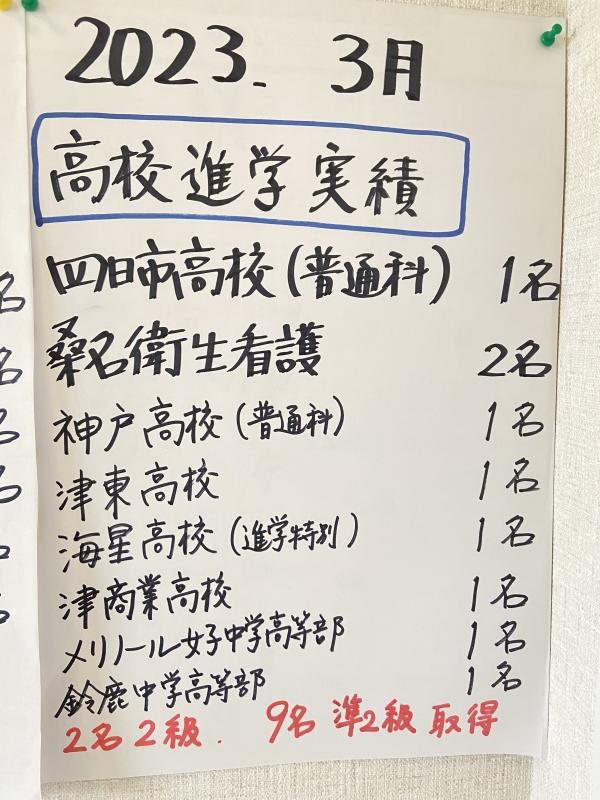 2023. 3月
高校進学実績
四日市高校(普通科) 1名
桑名衛生看護 2名
神戸高校(普通科) 1名
津東高校 1名
海星高校(進学特別) 1名
津商業高校 1名
メリノール女子中学高等部 1名
鈴鹿中学高等部 1名
2名2級. 9名 準2級 取得
名
名
名
名